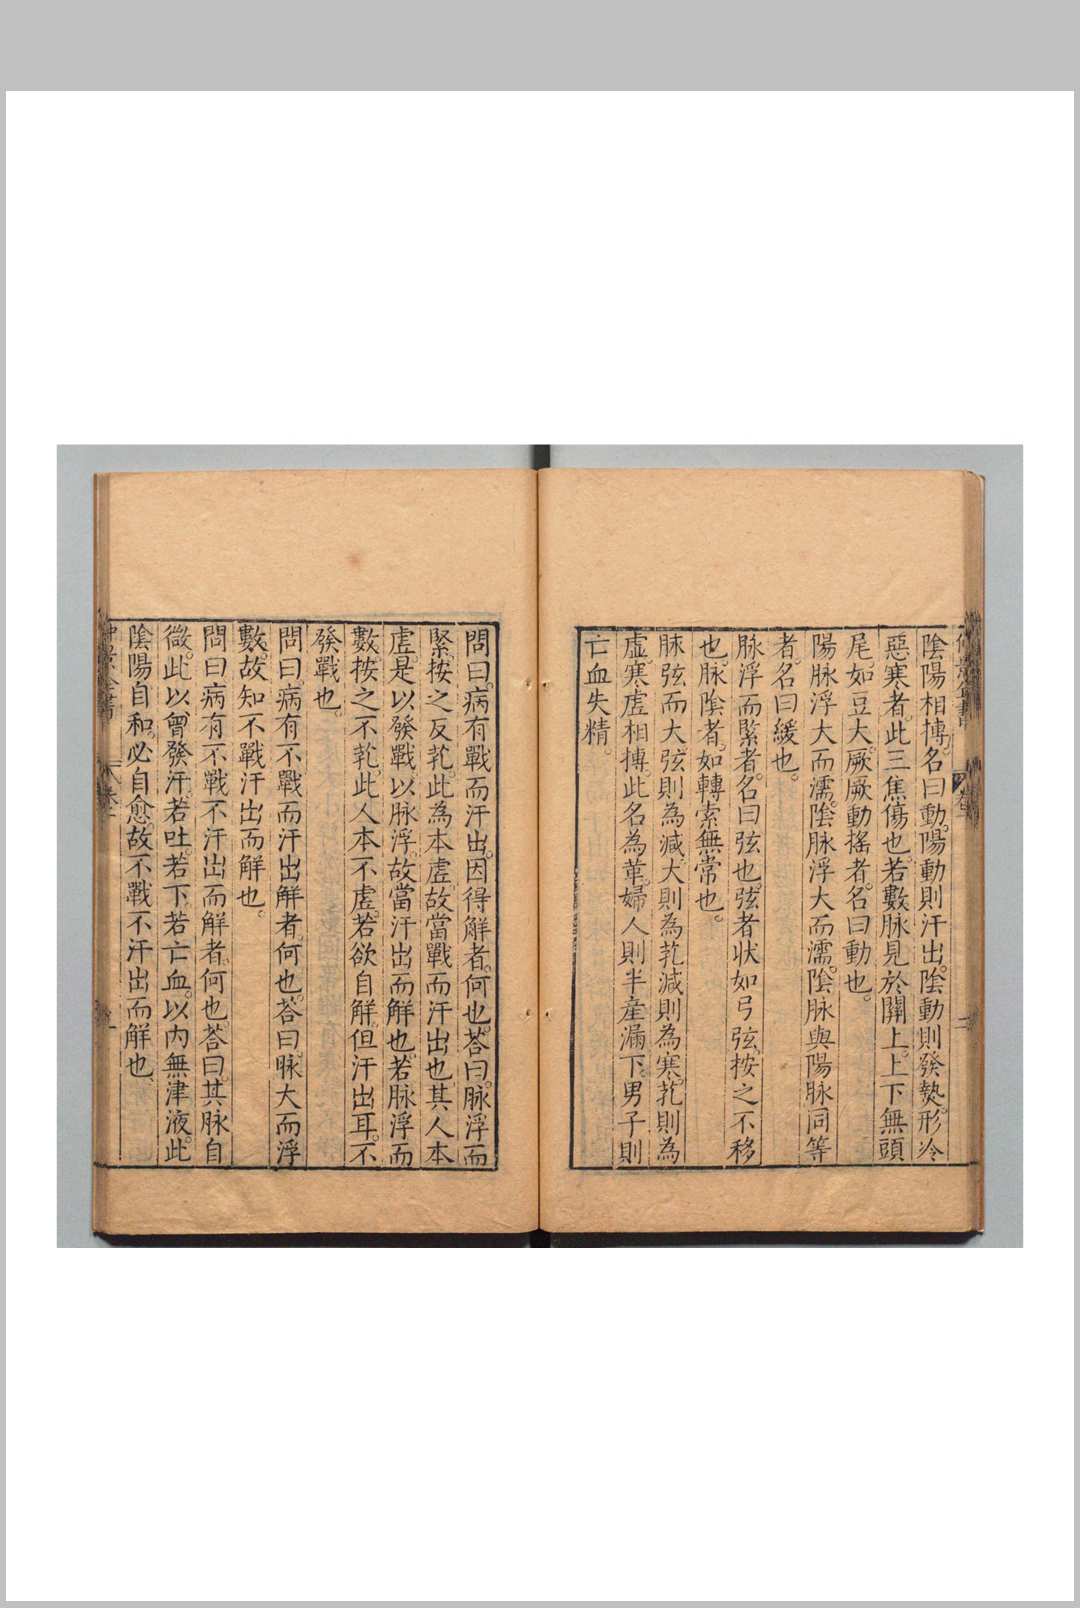 陰陽相搏。名曰動。陽動則汗出。陰動則發熱。形冷
惡寒者。此三焦傷也。若數脉見於關上。上下無頭
尾。如豆大。厥厥動搖者。名曰動也。
陽脉浮大而濡。陰脉浮大而濡。陰脉與陽脉同等
者。名曰緩也。
脉浮而緊者。名曰弦也。弦者狀如弓弦。按之不移
也。脉陰者。如轉索無常也。
脉弦而大。弦則為減。大則為芤。減則為寒。芤則為
虛。寒虛相搏。此名為革。婦人則半產漏下。男子則
亡血失精。
問曰。病有戰而汗出。因得解者。何也。荅曰。脉浮而
緊。按之反芤。此為本虛。故當戰而汗出也。其人本
虛。是以發戰。以脉浮。故當汗出而解也。若脉浮而
數。按之不芤。此人本不虛。若欲自解。但汗出耳。不
發戰也。
問曰。病有不戰而汗出解者。何也。荅曰。脉大而浮
數。故知不戰汗出而解也。
問曰。病有不戰不汗出而解者。何也。荅曰。其脉自
微。此以曾發汗。若吐。若下。若亡血。以內無津液。此
陰陽自和。必自愈。故不戰不汗出而解也。